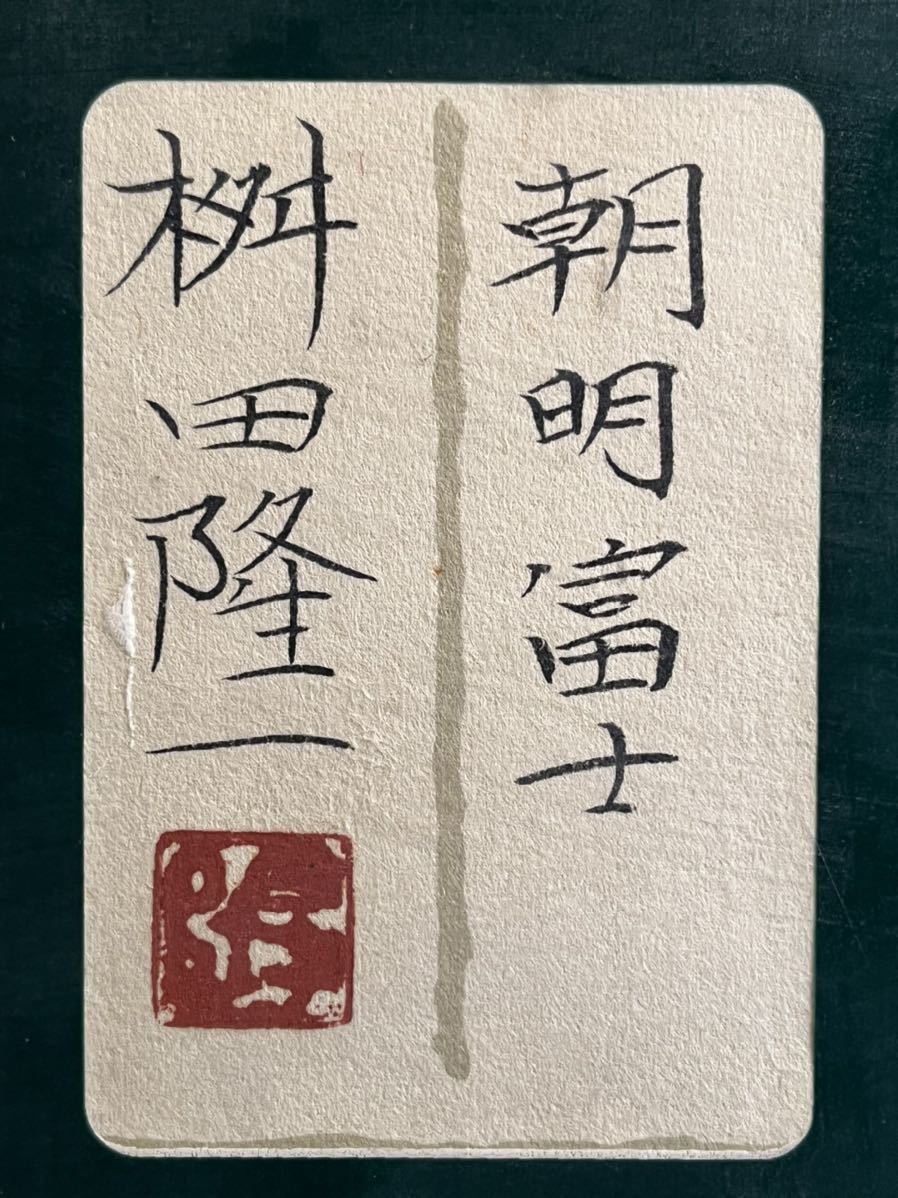 朝明富士
桝田隆一
隆